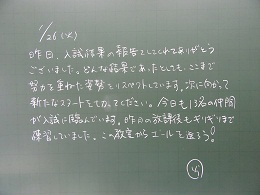 1/26(火)
昨日、入試結果の報告をしてくれてありがとう
ございました。どんな結果であったとしても、ここまで
努力を重ねた姿勢をリスペクトしています。次に向かって
新たなスタートをしてください。今日も13名の仲間
が入試に臨んでいます。昨日の放課後もギリギリまで
練習していました。この教室からエールを送ろう!